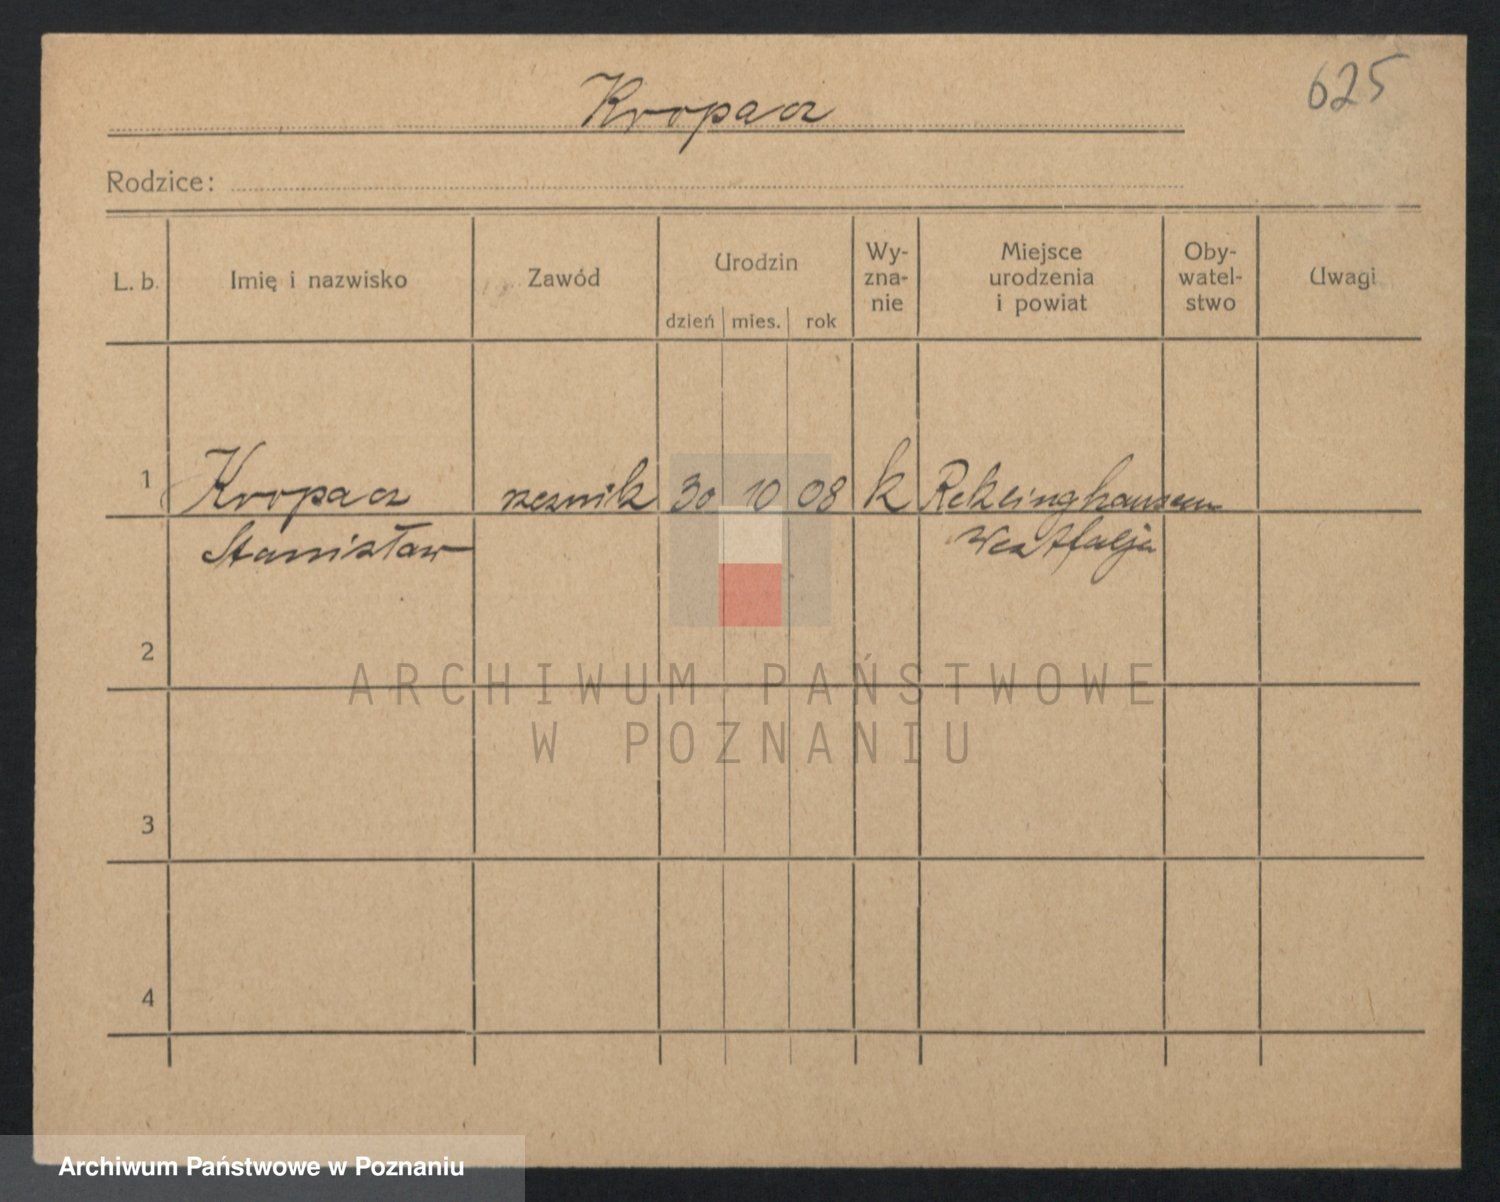 625
Kropacz
Rodzice:
L. b. Imię i nazwisko Zawód Urodzin dzień mies. rok Wy-zna-nie Miejsce urodzenia i powiat Oby-watel-stwo Uwagi
1 Kropacz rzeznik 30 10 08 k Rekeinghausen
Stanisław Westfalja
2
ARCHIWUM PAŃSTWOWE
W POZNANIU
3
4
Archiwum Państwowe w Poznaniu